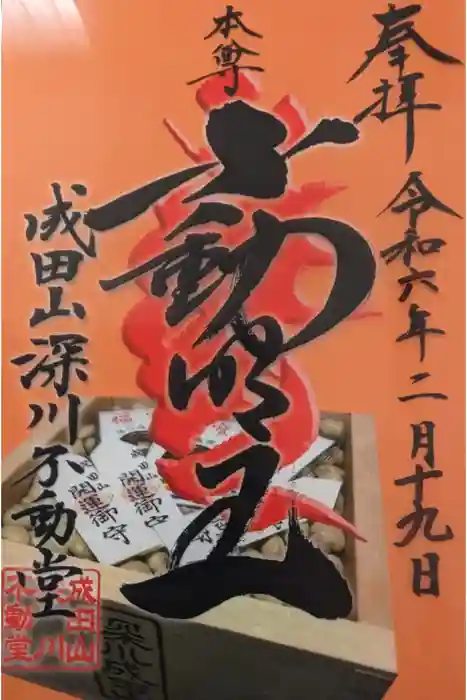 奉拝
令和六年二月十九日
本尊
不動明王
成田山深川不動堂
成田山
開運御守
成田山
開運御守
成田山
深川
不動堂